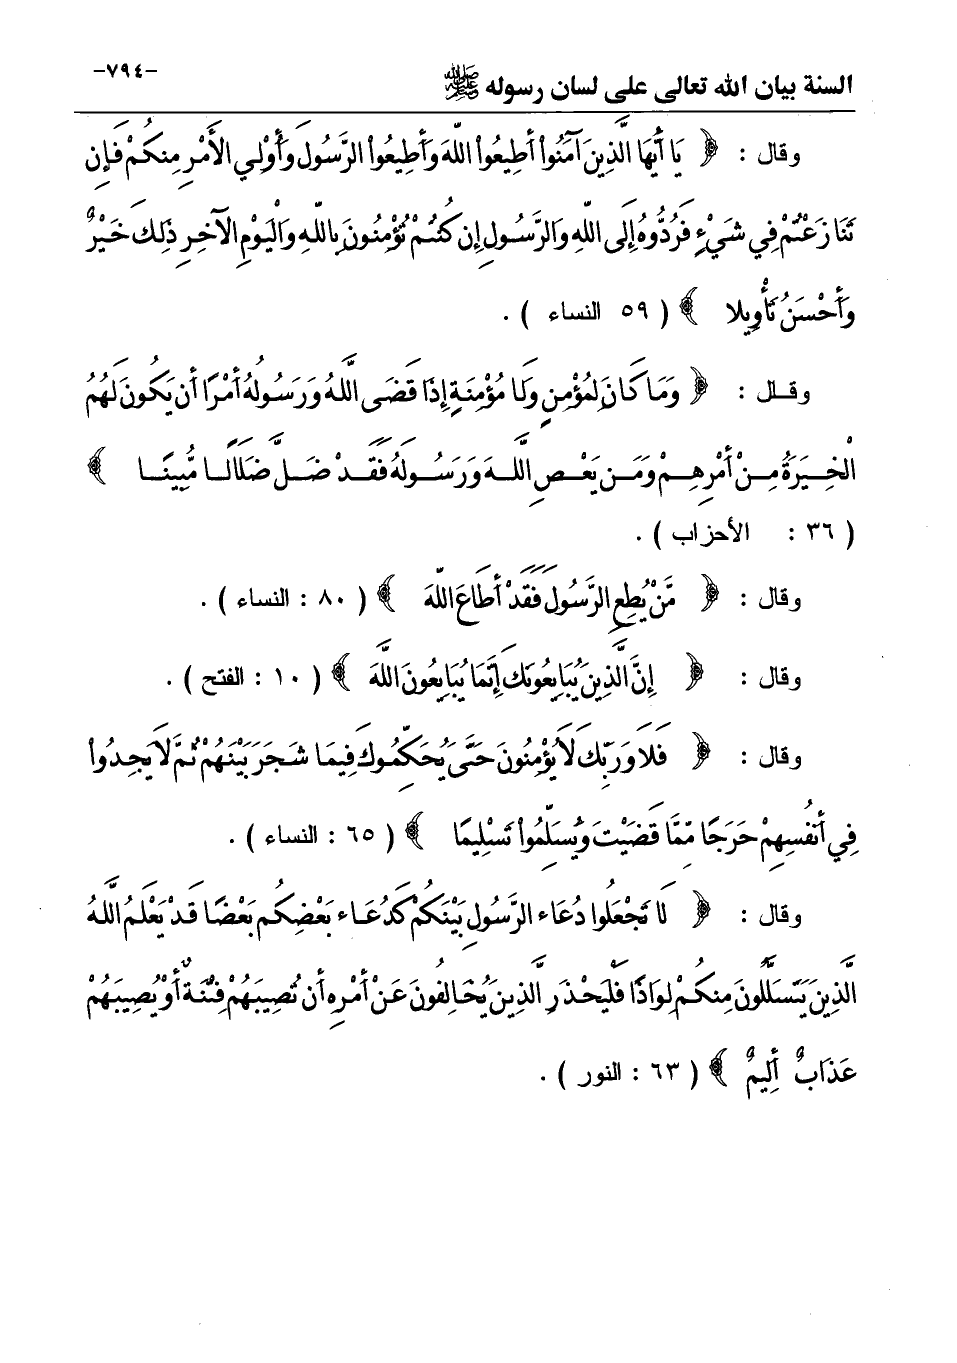 السنة بيان الله تعالى على لسان رسوله ﷺ -٧٩٤-
وقال : ﴿ يَا أَيُّهَا الَّذِينَ آمَنُواْ أَطِيعُواْ اللّهَ وَأَطِيعُواْ الرَّسُولَ وَأُوْلِي الأَمْرِ مِنكُمْ فَإِن
تَنَازَعْتُمْ فِي شَيْءٍ فَرُدُّوهُ إِلَى اللّهِ وَالرَّسُولِ إِن كُنتُمْ تُؤْمِنُونَ بِاللّهِ وَالْيَوْمِ الآخِرِ ذَلِكَ خَيْرٌ
وَأَحْسَنُ تَأْوِيلا ﴾ ( ٥٩ النساء ) .
وقـلل : ﴿ وَمَا كَانَ لِمُؤْمِنٍ وَلَا مُؤْمِنَةٍ إِذَا قَضَى اللَّهُ وَرَسُولُهُ أَمْرًا أَن يَكُونَ لَهُمُ
الْخِيَرَةُ مِنْ أَمْرِهِمْ وَمَن يَعْصِ اللَّهَ وَرَسُولَهُ فَقَدْ ضَلَّ ضَلَالًا مُّبِينًا ﴾
( ٣٦ : الأحزاب ) .
وقال : ﴿ مَّنْ يُطِعِ الرَّسُولَ فَقَدْ أَطَاعَ اللّهَ ﴾ ( ٨٠ : النساء ) .
وقال : ﴿ إِنَّ الَّذِينَ يُبَايِعُونَكَ إِنَّمَا يُبَايِعُونَ اللَّهَ ﴾ ( ١٠ : الفتح ) .
وقال : ﴿ فَلاَ وَرَبِّكَ لاَ يُؤْمِنُونَ حَتَّىَ يُحَكِّمُوكَ فِيمَا شَجَرَ بَيْنَهُمْ ثُمَّ لاَ يَجِدُواْ
فِي أَنفُسِهِمْ حَرَجًا مِّمَّا قَضَيْتَ وَيُسَلِّمُواْ تَسْلِيمًا ﴾ ( ٦٥ : النساء ) .
وقال : ﴿ لَا تَجْعَلُوا دُعَاء الرَّسُولِ بَيْنَكُمْ كَدُعَاء بَعْضِكُم بَعْضًا قَدْ يَعْلَمُ اللَّهُ
الَّذِينَ يَتَسَلَّلُونَ مِنكُمْ لِوَاذًا فَلْيَحْذَرِ الَّذِينَ يُخَالِفُونَ عَنْ أَمْرِهِ أَن تُصِيبَهُمْ فِتْنَةٌ أَوْ يُصِيبَهُمْ
عَذَابٌ أَلِيمٌ ﴾ ( ٦٣ : النور ) .